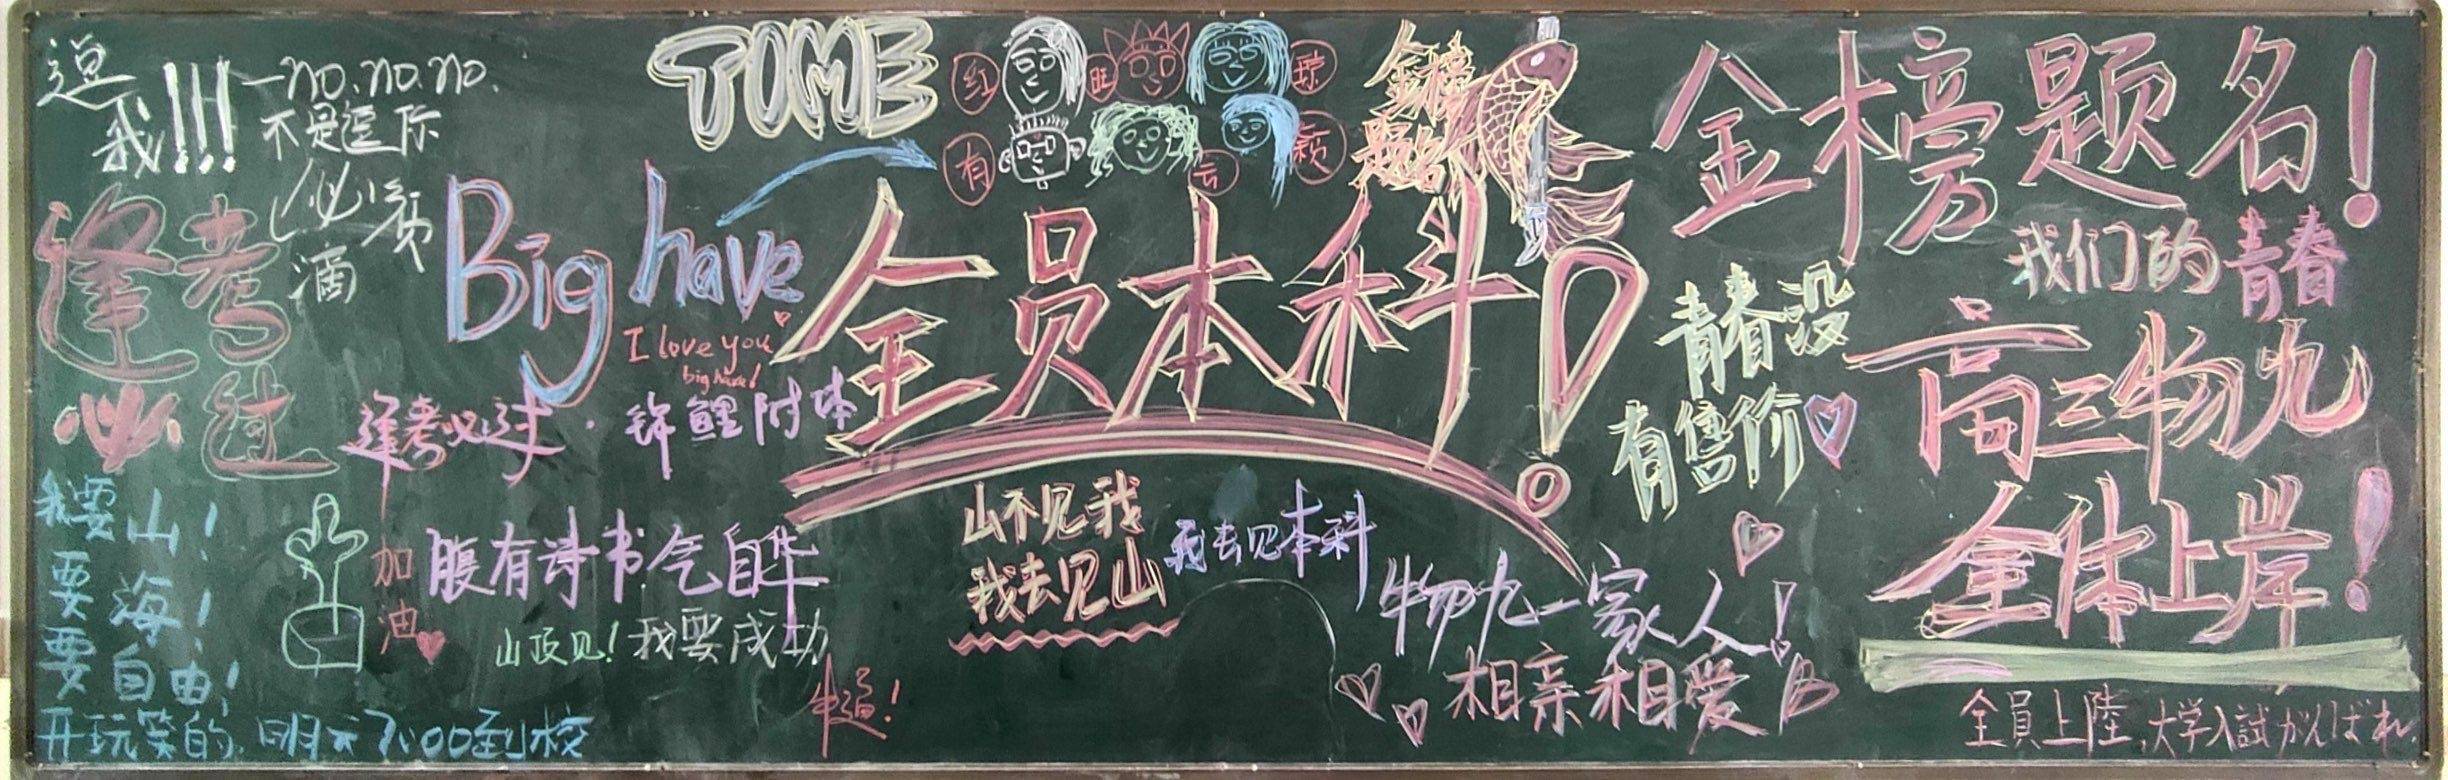 逗我!!!
一no.no.no.
不是逗你
必须
滴
逢考
必过
TIME
红
旺
琼
有
云
颖
金榜
题名
金榜题名!
我们的青春
Big have
I love you
big have!
全员本科!
青春没
有售价
高三物九
全体上岸!
逢考必过·锦鲤附体
加油
我要山!
要海!
要自由!
开玩笑的,明天7:00到校
腹有诗书气自华
山顶见!我要成功
牛逼!
山不见我
我去见山
我去见本科
物九一家人!
相亲相爱
全員上陸,大学入試がんばれ.